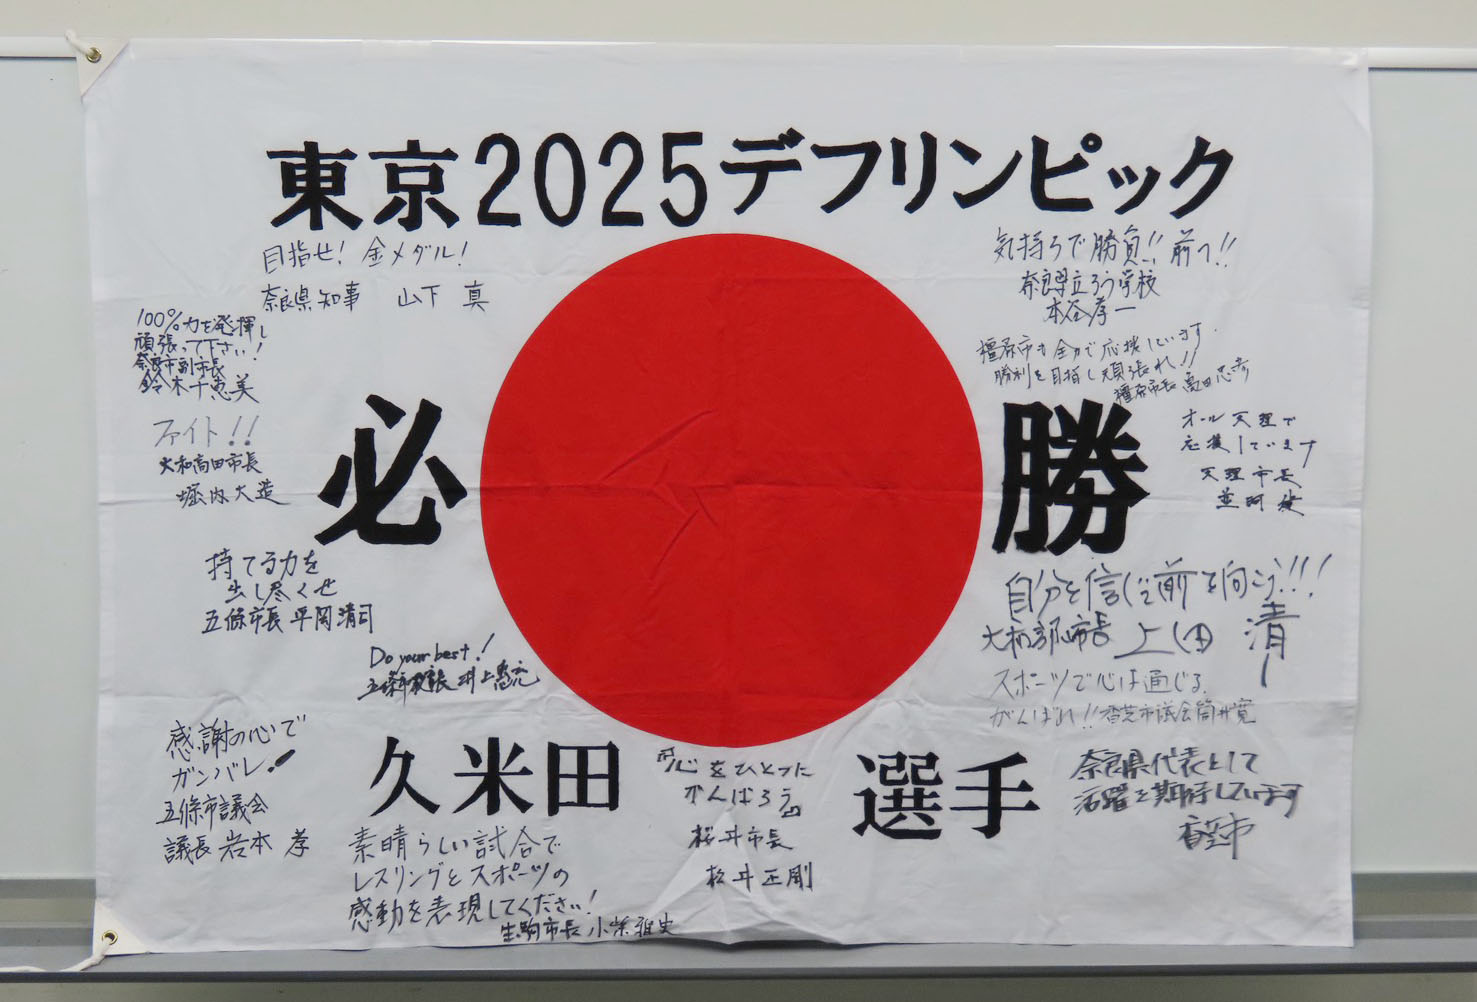 東京2025デフリンピック
目指せ!金メダル!
奈良県知事 山下 真
気持ちで勝負!!前へ!!
奈良県立ろう学校
本谷孝一
100%力を発揮し
頑張って下さい!
奈良市副市長
鈴木千恵美
橿原市も全力で応援しています。
勝利を目指し頑張れ!!
橿原市長 亀田忠彦
ファイト!!
大和高田市長
堀内大造
必 勝
オール天理で
応援しています
天理市長
並河健
持てる力を
出し尽くせ
五條市長 平岡清司
自分を信じて前を向こう!!!
大和郡山市長 上田 清
Do your best!
五條市 井上
スポーツで心は通じる。
がんばれ!!香芝市議会 筒井寛
感謝の心で
ガンバレ!
五條市議会
議長 岩本 孝
久米田 選手
心をひとつに
がんばろう
桜井市長
松井正剛
奈良県代表として
活躍を期待しています
香芝市
素晴らしい試合で
レスリングとスポーツの
感動を表現してください!
生駒市長 小紫雅史